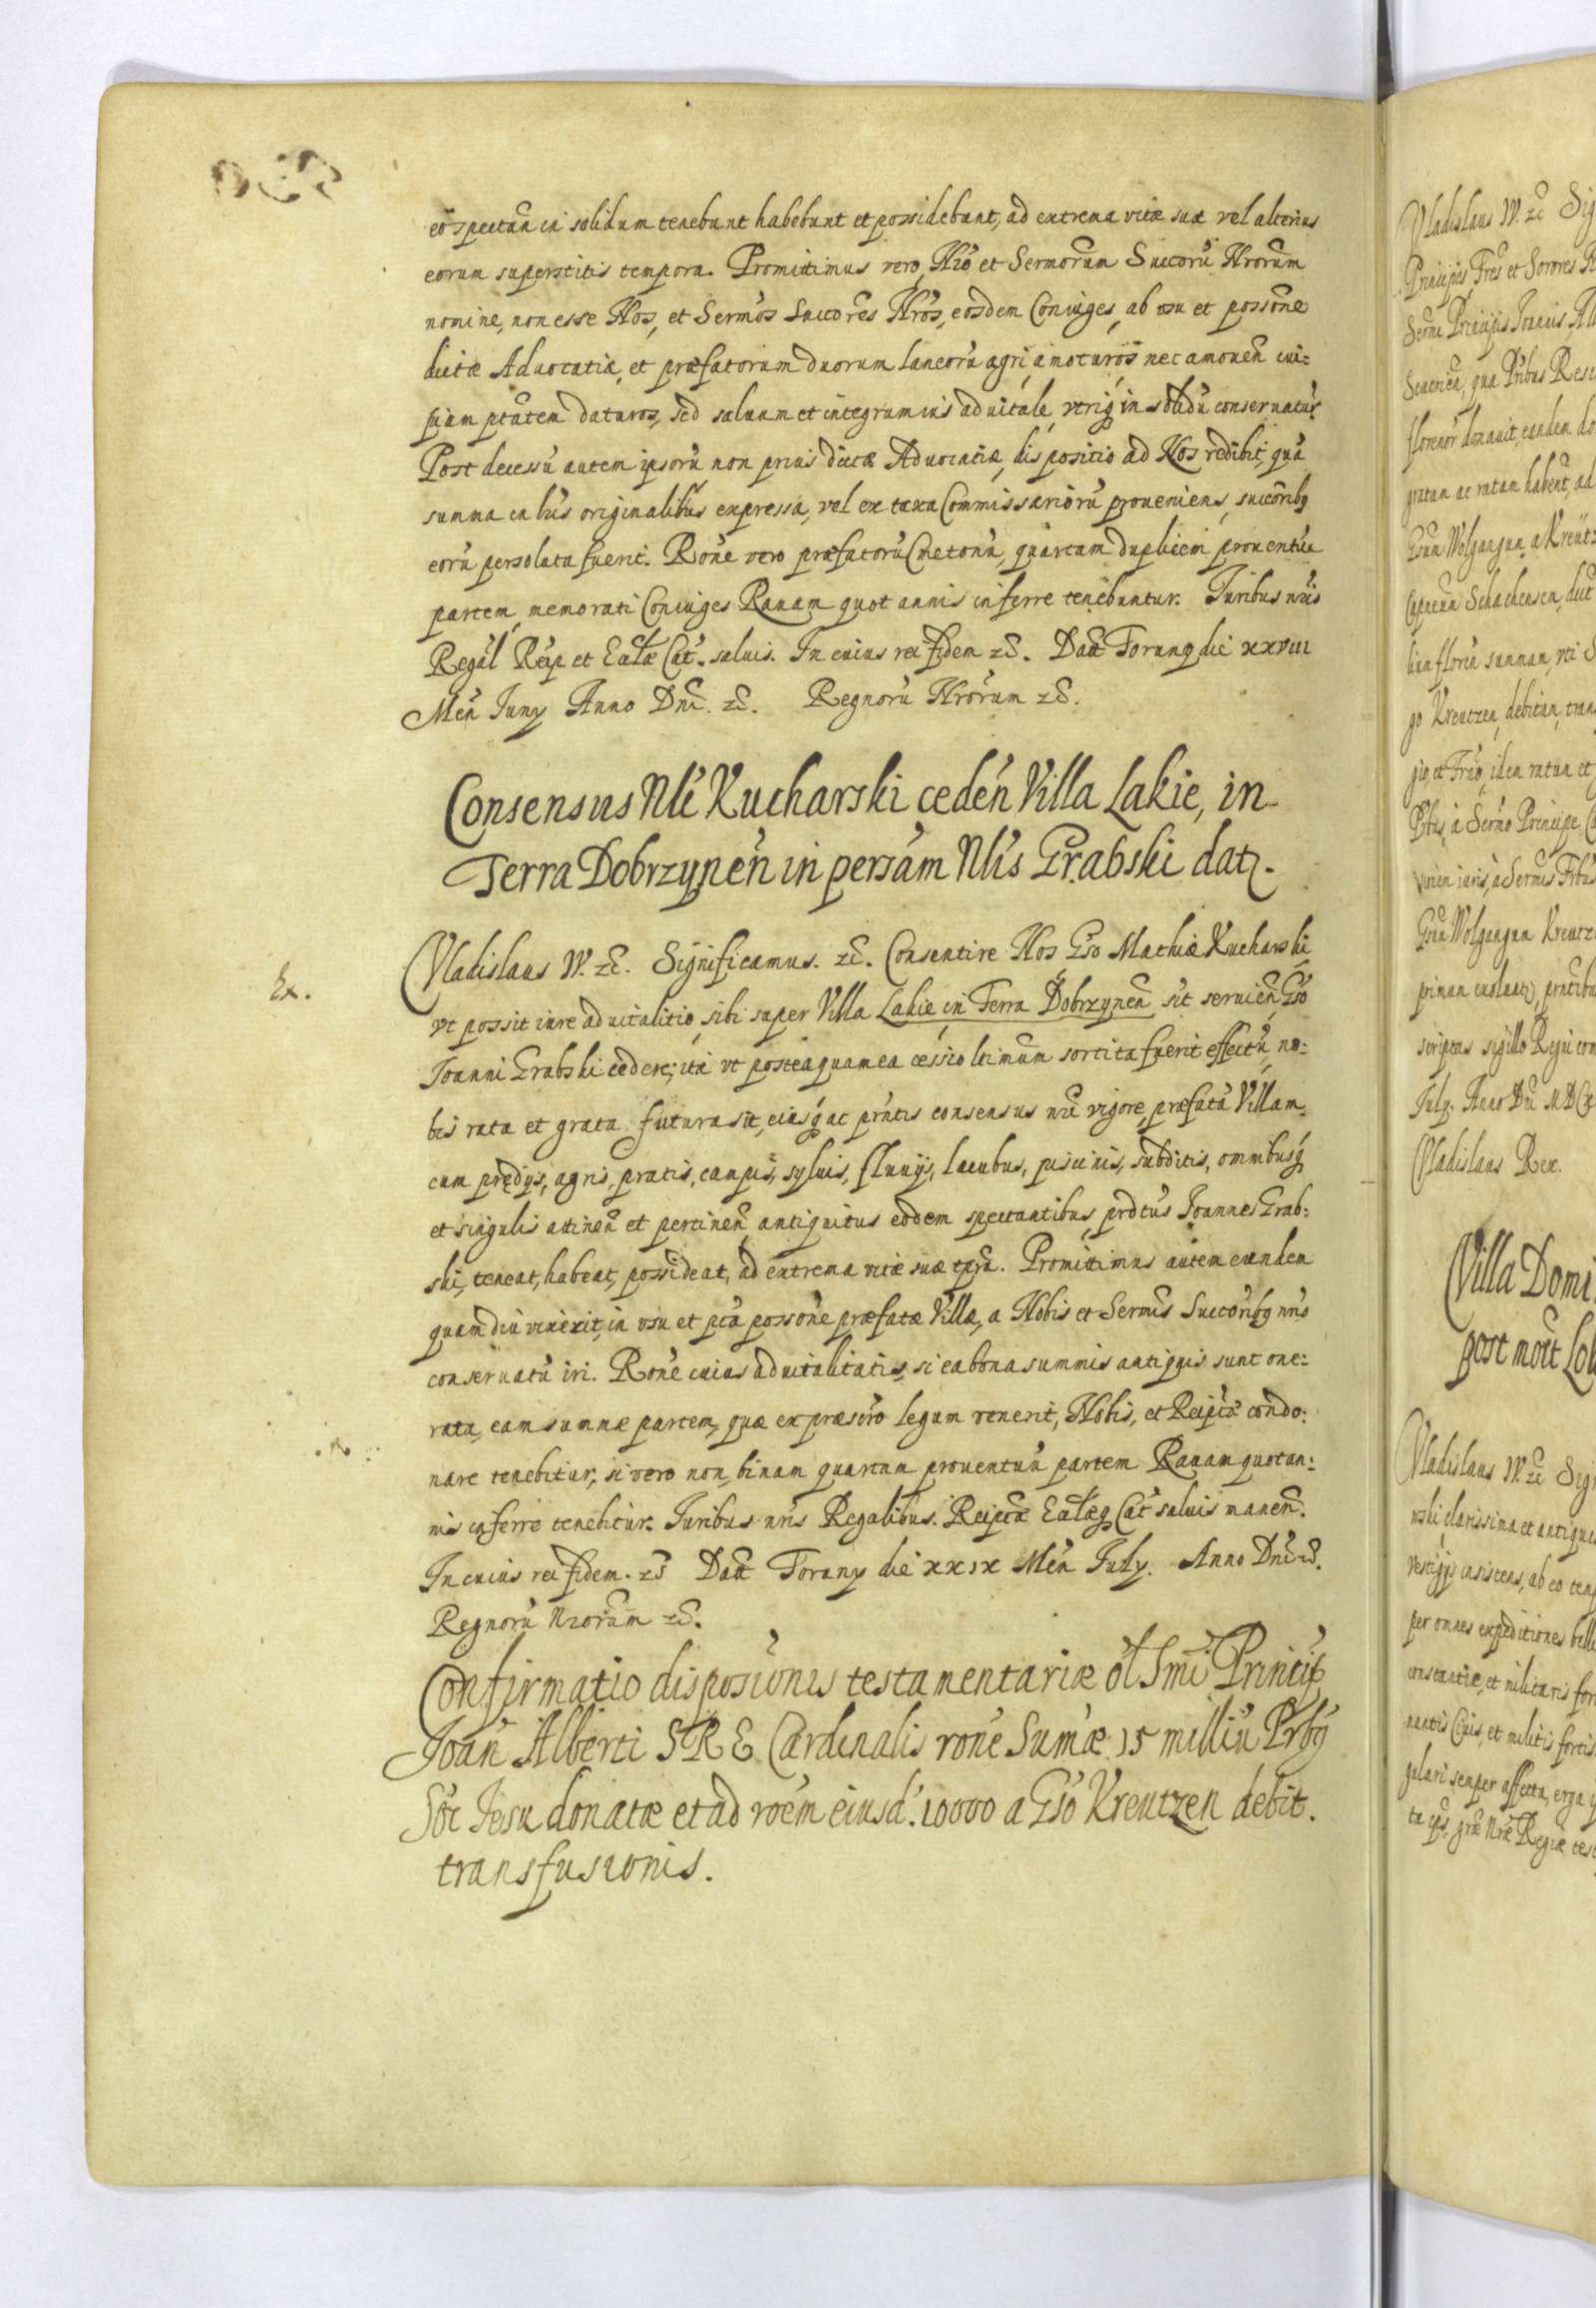 eo spectan in solidum tenebunt habebunt et possidebunt, ad extrema vitæ suæ vel alterius
eorum superstitis tempora. Promittimus vero, Nro et Sermorum Succorũ Nrorum
nomine, non esse Nos, et Sermos Succores Nros, eosdem Coniuges, ab usu et possone
dictæ Aduocatiæ, et præfatorum duorum laneorũ agri amoturos nec amouen cui=
piam ptatem daturos, sed saluum et integrum ius aduitale, vtriq in solidũ conseruatur.
Post decessũ autem ipsorũ non prius dictæ Aduocatiæ, dispositio ad Nos redibit, quã
summa in lris originalibus expressa, vel ex taxa Commissariorũ proueniens, succoribq
eorũ persoluta fuerit. Rone vero præfatorũ Cmetonũ, quartam duplicem prouentus
partem, memorati Coniuges Rauam quot annis inferre tenebuntur. Iuribus nris
Regal Reip et Ecclæ Cat. saluis. In cuius rei fidem zc. Dat Toruny die XXVIII
Men Iuny Anno Dni. zc. Regnorũ Nrorum zc.
Consensus Nli Kucharski ceden Villa Lakie, in
Terra Dobrzynen in persam Nlis Grabski dat.
Ex.
Vladislaus W. zc. Significamus. zc. Consentire Nos Gso Mathiæ Kucharski
vt possit iure aduitalitio, sibi super Villa Lakie in Terra Dobrzynen sit seruien Gso
Ioanni Grabski cedere; ita vt posteaquam ea cessio ltimum sortita fuerit effectũ, no=
bis rata et grata futura sit, eiusq ac pntis consensus nri vigore, præfatã Villam
cum prędys, agris, pratis, campis, syluis, fluuys, lacubus, piscinis, subditis, omnibusq
et singulis attinen et pertinen antiquitus eodem spectantibus, prdtus Ioannes Grab=
ski, teneat, habeat, possideat, ad extrema vitæ suæ tpra. Promittimus autem eundem
quam diu vixerit, in usu et pta possone præfatæ Villæ, a Nobis et Sermis Succoribq nris
conseruatũ iri. Rone cuius aduitalitatis, si ea bona summis antiquis sunt one=
rata, eam summæ partem, quæ ex præscro legum venerit, Nobis, et Reiptæ condo=
nare tenebitur, si vero non, binam quartam prouentuũ partem Rauam quotan=
nis inferre tenebitur. Iuribus nris Regalibus. Reiptæ Ecclæq Cat saluis manen.
In cuius rei fidem. zc Dat Toruny die XXIX Men July. Anno Dni zc.
Regnorũ Nrorum zc.
Confirmatio disposionis testamentariæ ol Smi Princip
Ioan Alberti S R E Cardinalis rone Sumæ 15 milliũ Prbq
Soc Iesu donatæ et ad roem eiusd. 10000 a Gso Kreutzen debit.
transfusionis.
Vladislaus W. zc Sig
Principis Fres et Sorores
Sermi Principis Ioannis Al
floreno donauit, eandem do
gratam ac ratam habent, ad
Gsum Wolgangum a Kreutz
go Kreutzen, debitam, trans
à Sermo Principe
Gsum Wolgangum Kreutz
scriptas sigillo
July. Anno Dni
Vladislaus Rex.
Villa Domi
post mort
Vladislaus W. zc Sig
clarissima et antiqua
vestigys insistens, ab eo temp
per omnes expeditiones belli
constantiæ, et militaris for
Ciuis, et militis fortis
semper affectu, erga